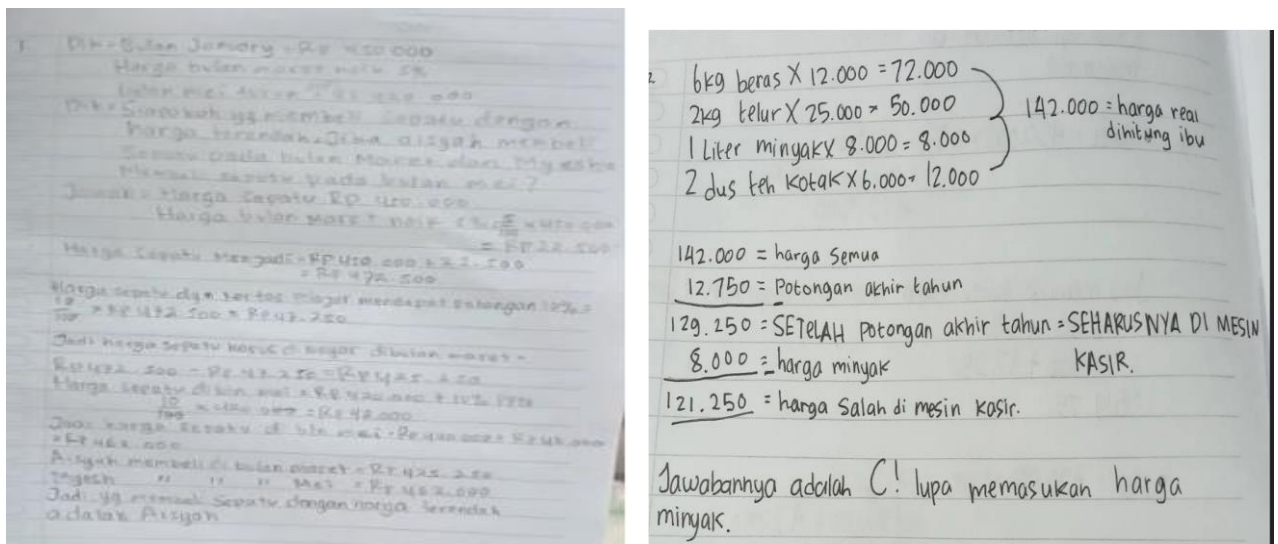 1 Dik = Bulan Januory = RP 450.000
Harga bulan maret naik 5%
bulan mei
Dit = yg membeli sepatu dengan
harga terendah Jika aisyah membeli
Sepatu pada bulan Maret dan
sepatu pada bulan mei?
Jawab = Harga Sepatu RP
Harga bulan Maret naik
= RP 22.500
Harga Sepatu Menjadi = RP 450.000 + 22.500
= RP 472.500
Harga sepatu dgn mendapat potongan 10% =
10/100 × RP 472.500 = RP 47.250
Jadi harga sepatu harus di bayar dibulan maret =
RP 472.500 - RP 47.250 = RP 425.250
Harga sepatu di bln mei = RP 420.000 + 10%
10/100 × = RP 42.000
harga sepatu di bln mei =
= RP 462.000
Aisyah membeli di bulan maret = RP 425.250
" " " Mei = RP 462.000
Jadi yg membeli sepatu dengan harga terendah
adalah Aisyah
2 6kg beras X 12.000 = 72.000
2kg telur X 25.000 = 50.000
1 Liter minyak X 8.000 = 8.000
2 dus teh kotak X 6.000 = 12.000
142.000 = harga real
dihitung ibu
142.000 = harga semua
12.750 = Potongan akhir tahun
129.250 = SETELAH Potongan akhir tahun = SEHARUSNYA DI MESIN
KASIR.
8.000 = harga minyak
121.250 = harga Salah di mesin kasir.
Jawabannya adalah C! lupa memasukan harga
minyak.